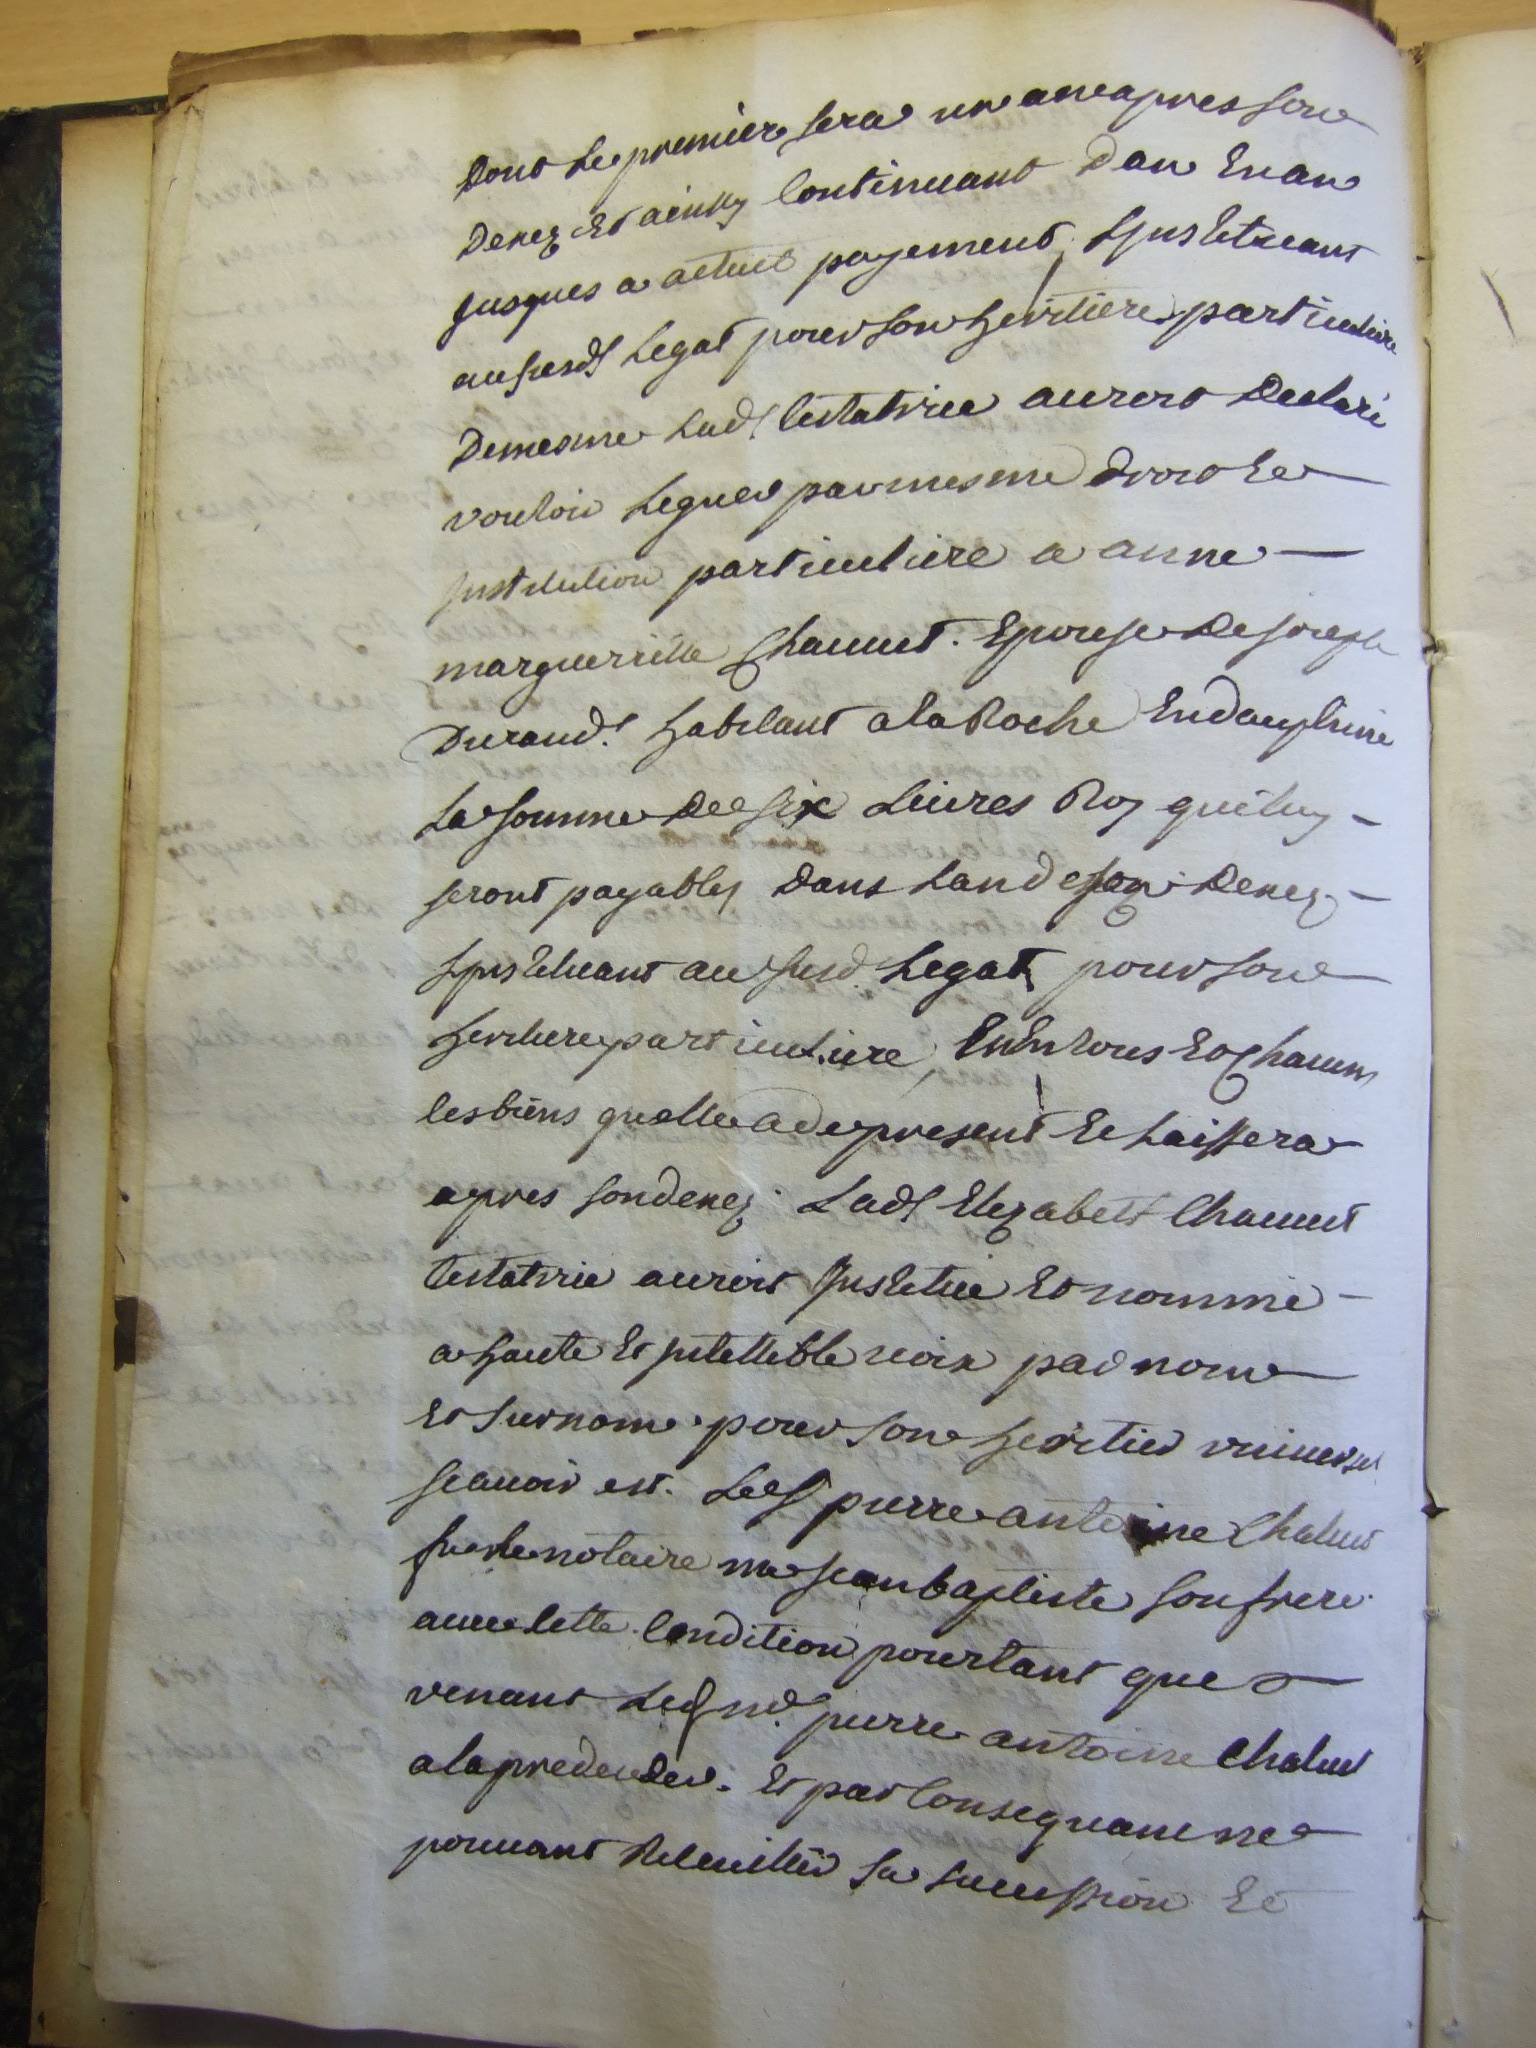 Dont Le premier sera un an apres son
Decez Et ainsy Continuant Dan En an
Jusques a actuel payement, Jnstituant
au susd Legat pour son heritiere particuliere
De mesme Lad testatrice auroit Declaré
vouloir Leguer par mesme droit Et
Jnstitution particuliere a anne
marguerritte Chauvet. Epouse de Joseph
Durand. habitant a la Roche En dauphiné
La somme De six Livres Roy qui luy
seront payables Dans Lan de son Decez
Jnstituant au susd. Legat pour son
heritiere particuliere, En En tous Et Chacuns
les biens quelle a de present Et Laissera
apres son decez. Lad Elezabeth Chauvet
testatrice auroit Jnstitué Et nommé
a haute Et Jntelleble voix par nom
Et surnom pour son heritier universel
scauoir est. Le Sr pierre antoine Chaluet
notaire me Jean baptiste son frere
auec Cette Condition pourtant que
venant Led Sr pierre antoine Chaluet
a la predeceder. Et par Consequant ne
pouuant Recuillir sa succession Et